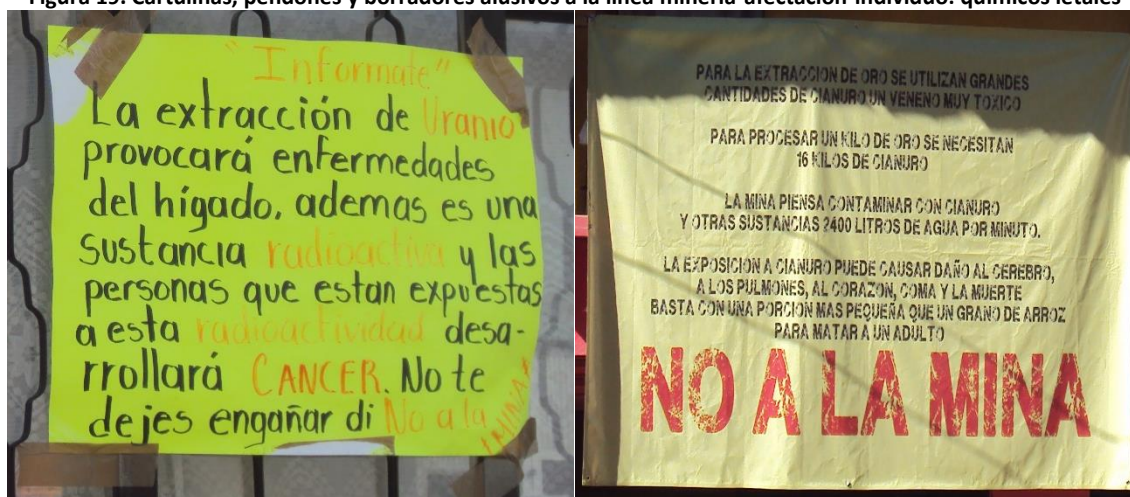 Figura 19. Cartulinas, pendones y borradores alusivos a la línea minería-afectación-individuo: químicos letales
"Informate"
La extracción de Uranio
provocará enfermedades
del hígado. ademas es una
sustancia radioactiva y las
personas que estan expuestas
a esta radioactividad desa-
rrollará CANCER. No te
dejes engañar di No a la
¡MINA!
PARA LA EXTRACCION DE ORO SE UTILIZAN GRANDES
CANTIDADES DE CIANURO UN VENENO MUY TOXICO
PARA PROCESAR UN KILO DE ORO SE NECESITAN
16 KILOS DE CIANURO
LA MINA PIENSA CONTAMINAR CON CIANURO
Y OTRAS SUSTANCIAS 2400 LITROS DE AGUA POR MINUTO.
LA EXPOSICION A CIANURO PUEDE CAUSAR DAÑO AL CEREBRO,
A LOS PULMONES, AL CORAZON, COMA Y LA MUERTE
BASTA CON UNA PORCION MAS PEQUEÑA QUE UN GRANO DE ARROZ
PARA MATAR A UN ADULTO
NO A LA MINA